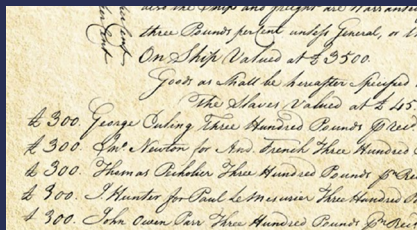 also the Ship and freight are Warranted
three Pounds percent unless General, or
On Ship Valued at £3500.
Goods as Shall be hereafter Specified
The Slaves Valued at £45
£300. George Curling Three Hundred Pounds
£300. Jno. Newton for And. French Three Hundred
£300. Thomas Three Hundred Pounds
£300. J Hunter for Paul Le Mesurier Three Hundred
£300. John Owen Parr Three Hundred Pounds